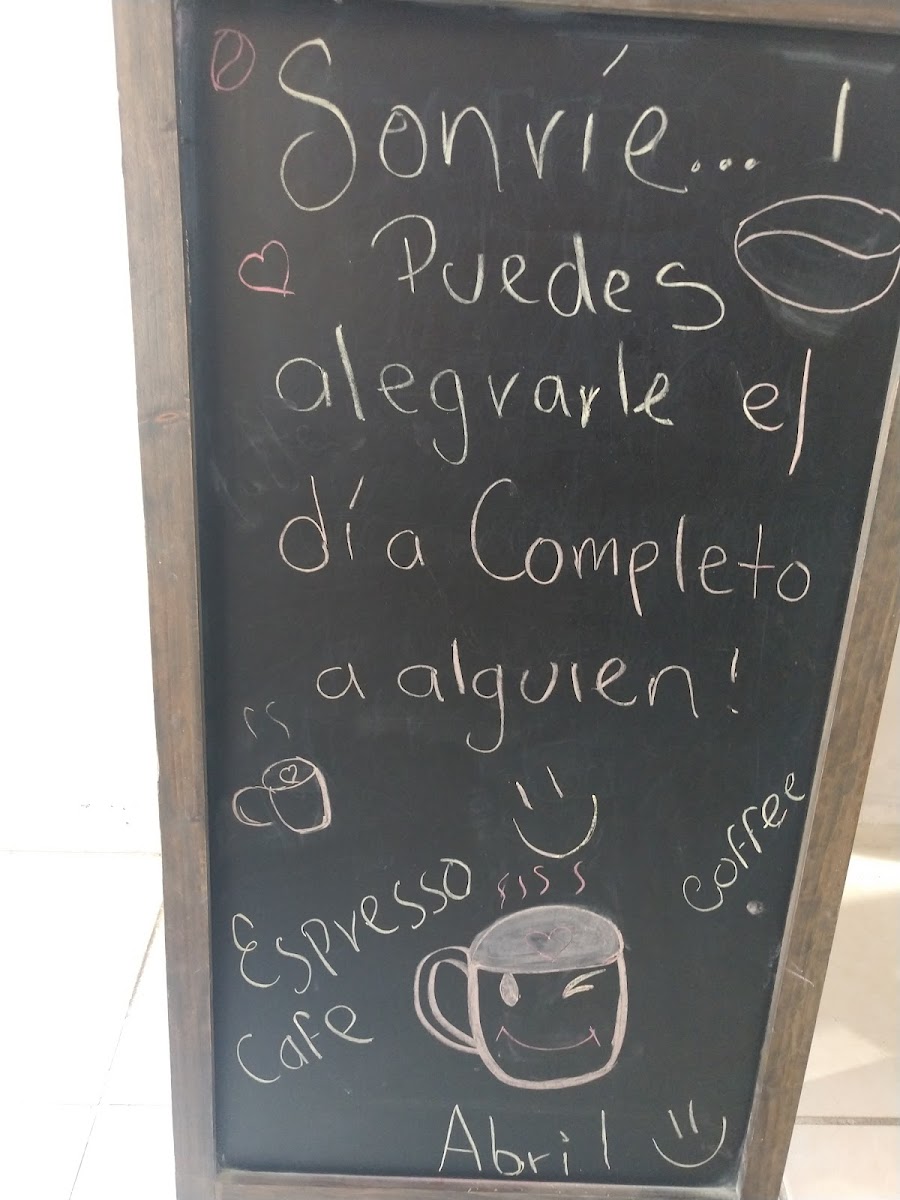 Sonríe... !
Puedes
alegrarle el
día Completo
a alguien!
Coffee
Espresso
Cafe
Abril